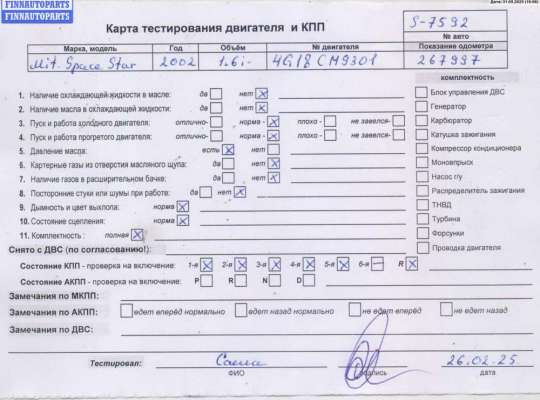 FINNAUTOPARTS
FINNAUTOPARTS
Карта тестирования двигателя и КПП
S-7592
№ авто
Марка, модель Год Объём № двигателя Показание одометра
Mit. Space Star 2002 1.6i- 4G18 CM9301 267997
комплектность
1. Наличие охлаждающей жидкости в масле: да нет
Блок управления ДВС
2. Наличие масла в охлаждающей жидкости: да нет
Генератор
3. Пуск и работа холодного двигателя: отлично- норма - плохо - не завелся-
Карбюратор
4. Пуск и работа прогретого двигателя: отлично- норма - плохо- не завелся-
Катушка зажигания
5. Давление масла: есть нет
Компрессор кондиционера
6. Картерные газы из отверстия масляного щупа: да нет
Моновпрыск
7. Наличие газов в расширительном бачке: да нет
Насос г/у
8. Посторонние стуки или шумы при работе: да нет
Распределитель зажигания
9. Дымность и цвет выхлопа: норма
ТНВД
10. Состояние сцепления: норма
Турбина
11. Комплектность : полная
Форсунки
Снято с ДВС (по согласованию!):
Проводка двигателя
Состояние КПП - проверка на включение: 1-я 2-я 3-я 4-я 5-я 6-я R
Состояние АКПП - проверка на включение: P R N D
Замечания по МКПП:
Замечания по АКПП: едет вперёд нормально едет назад нормально не едет вперёд не едет назад
Замечания по ДВС:
Тестировал: Саша 26.02.25
ФИО подпись дата